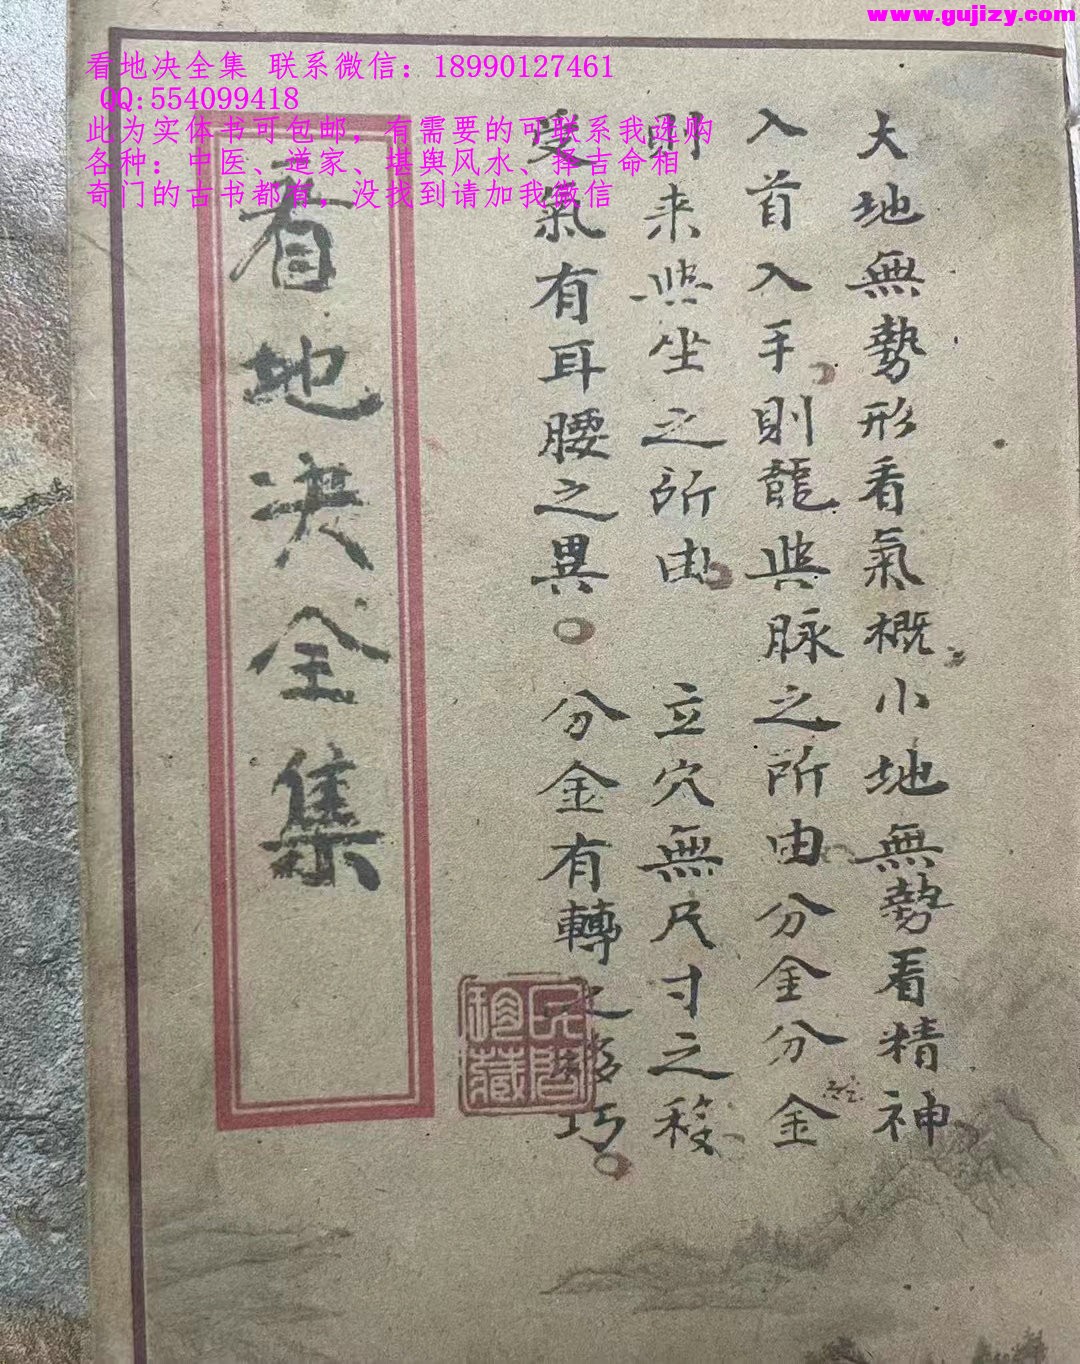 www.gujizy.com
看地决全集 联系微信：18990127461
QQ:554099418
此为实体书可包邮，有需要的可联系我选购
各种：中医、道家、堪舆风水、择吉命相
奇门的古书都有，没找到请加我微信
大地無勢形看氣概小地無勢看精神
入首入手則龍與脉之所由分金分金
則来與坐之所由 立穴無尺寸之移
受氣有耳腰之異 分金有轉之巧
看地决全集
珍藏